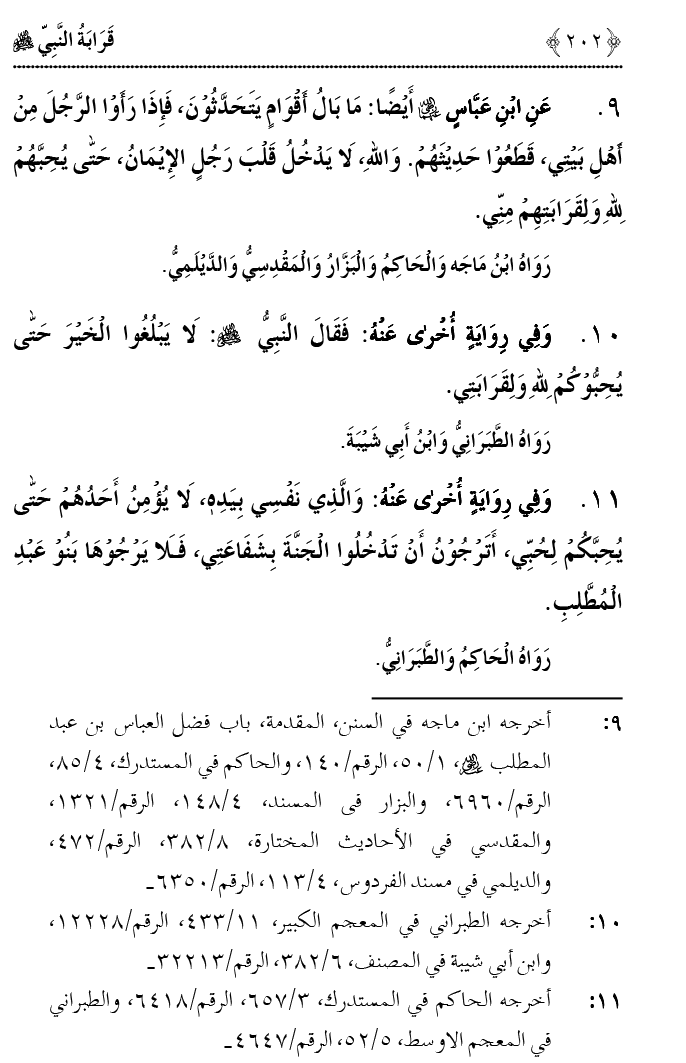 ﴿٢٠٢﴾ قَرَابَةُ النَّبِيِّ ﷺ
٩. عَنِ ابْنِ عَبَّاسٍ أَيْضًا: مَا بَالُ أَقْوَامٍ يَتَحَدَّثُوْنَ، فَإِذَا رَأَوُا الرَّجُلَ مِنْ
أَهْلِ بَيْتِي، قَطَعُوْا حَدِيْثَهُمْ. وَاللهِ، لَا يَدْخُلُ قَلْبَ رَجُلٍ الإِيْمَانُ، حَتّٰى يُحِبَّهُمْ
لِلهِ وَلِقَرَابَتِهِمْ مِنِّي.
رَوَاهُ ابْنُ مَاجَه وَالْحَاكِمُ وَالْبَزَّارُ وَالْمَقْدِسِيُّ وَالدَّيْلَمِيُّ.
١٠. وَفِي رِوَايَةٍ أُخْرٰى عَنْهُ: فَقَالَ النَّبِيُّ ﷺ: لَا يَبْلُغُوا الْخَيْرَ حَتّٰى
يُحِبُّوْكُمْ لِلهِ وَلِقَرَابَتِي.
رَوَاهُ الطَّبَرَانِيُّ وَابْنُ أَبِي شَيْبَةَ.
١١. وَفِي رِوَايَةٍ أُخْرٰى عَنْهُ: وَالَّذِي نَفْسِي بِيَدِهٖ، لَا يُؤْمِنُ أَحَدُهُمْ حَتّٰى
يُحِبَّكُمْ لِحُبِّي، أَتَرْجُوْنَ أَنْ تَدْخُلُوا الْجَنَّةَ بِشَفَاعَتِي، فَلَا يَرْجُوْهَا بَنُوْ عَبْدِ
الْمُطَّلِبِ.
رَوَاهُ الْحَاكِمُ وَالطَّبَرَانِيُّ.
٩: أخرجه ابن ماجه في السنن، المقدمة، باب فضل العباس بن عبد
المطلب، ١/٥٠، الرقم/١٤٠، والحاكم في المستدرك، ٤/٨٥،
الرقم/٦٩٦٠، والبزار فى المسند، ٤/١٤٨، الرقم/١٣٢١،
والمقدسي في الأحاديث المختارة، ٨/٣٨٢، الرقم/٤٧٢،
والديلمي في مسند الفردوس، ٤/١١٣، الرقم/٦٣٥٠ـ
١٠: أخرجه الطبراني في المعجم الكبير، ١١/٤٣٣، الرقم/١٢٢٢٨،
وابن أبي شيبة في المصنف، ٦/٣٨٢، الرقم/٣٢٢١٣ـ
١١: أخرجه الحاكم في المستدرك، ٣/٦٥٧، الرقم/٦٤١٨، والطبراني
في المعجم الاوسط، ٥/٥٢، الرقم/٤٦٤٧ـ